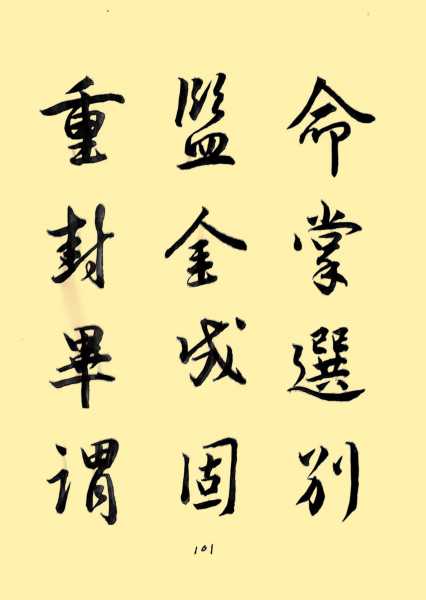 命掌選別
監金成固
重封畢謂
101